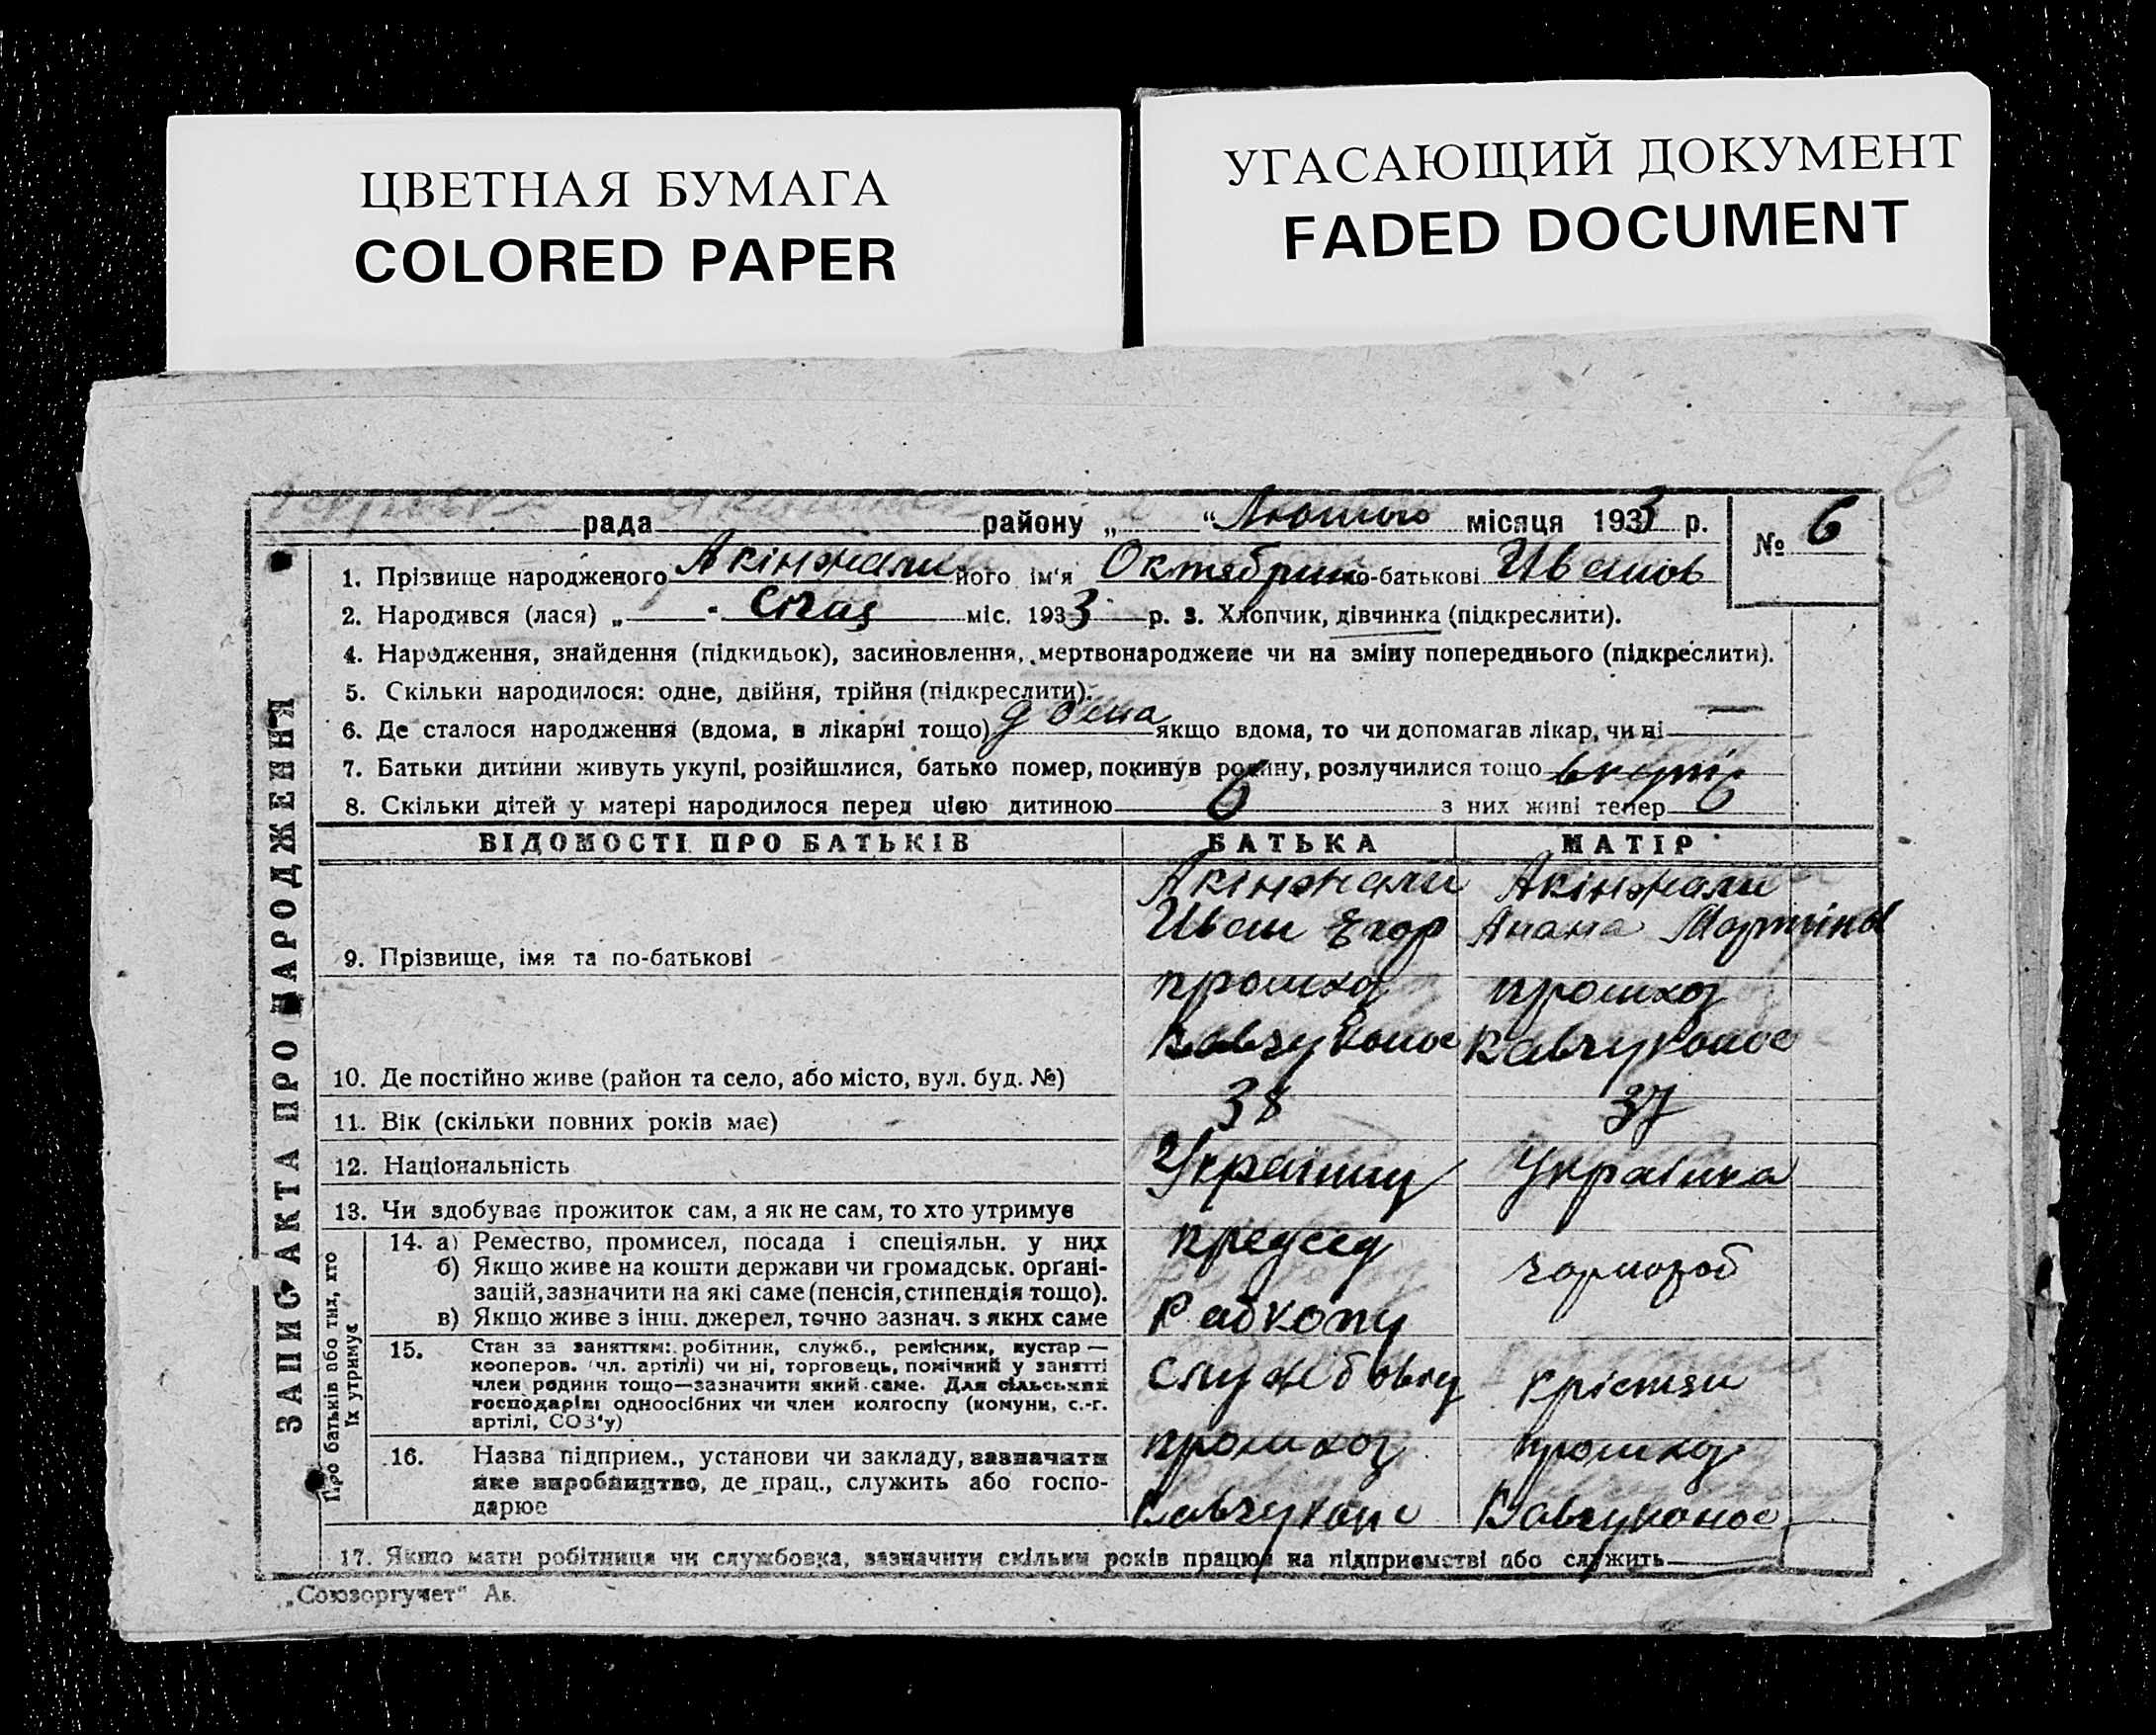 ЦВЕТНАЯ БУМАГА
COLORED PAPER
УГАСАЮЩИЙ ДОКУМЕНТ
FADED DOCUMENT
6
рада району „ “ Лютого місяця 1933 р. № 6
ЗАПИС АКТА ПРО НАРОДЖЕННЯ
1. Прізвище народженого Акінжали його ім'я Октябрина по-батькові Иванов
2. Народився (лася) „ " Січня міс. 1933 р. 3. Хлопчик, дівчинка (підкреслити).
4. Народження, знайдення (підкидьок), засиновлення, мертвонароджене чи на зміну попереднього (підкреслити).
5. Скільки народилося: одне, двійня, трійня (підкреслити).
6. Де сталося народження (вдома, в лікарні тощо) дома якщо вдома, то чи допомагав лікар, чи ні —
7. Батьки дитини живуть укупі, розійшлися, батько помер, покинув родину, розлучилися тощо вкупі
8. Скільки дітей у матері народилося перед цією дитиною 6 з них живі тепер 6
ВІДОМОСТІ ПРО БАТЬКІВ БАТЬКА МАТІР
Акінжали Акінжали
Иван Егор Мартінов
9. Прізвище, імя та по-батькові
промход промход
Кавчуконос Кавчуконос
10. Де постійно живе (район та село, або місто, вул. буд. №)
11. Вік (скільки повних років має) 38 37
12. Національність Українец Українка
13. Чи здобуває прожиток сам, а як не сам, то хто утримує
Про батьків або тих, хто їх утримує
14. а) Ремество, промисел, посада і спеціяльн. у них председ чорнороб
б) Якщо живе на кошти держави чи громадськ. органі-
зацій, зазначити на які саме (пенсія, стипендія тощо).
в) Якщо живе з інш. джерел, точно зазнач. з яких саме Рабкопу
15. Стан за заняттям: робітник, служб., ремісник, кустар —
кооперов. (чл. артілі) чи ні, торговець, помічний у занятті
член родини тощо—зазначити який саме. Для сільських
господарів: одноосібних чи член колгоспу (комуни, с.-г.
артілі, СОЗ'у)
службовец крістян
16. Назва підприем., установи чи закладу, зазначати
яке виробництво, де прац., служить або госпо-
дарює
промход промход
Кавчуконс Кавчуконос
17. Якщо мати робітниця чи службовка, зазначити скільки років працює на підприємстві або служить —
„Союзоргучет“ Ак.